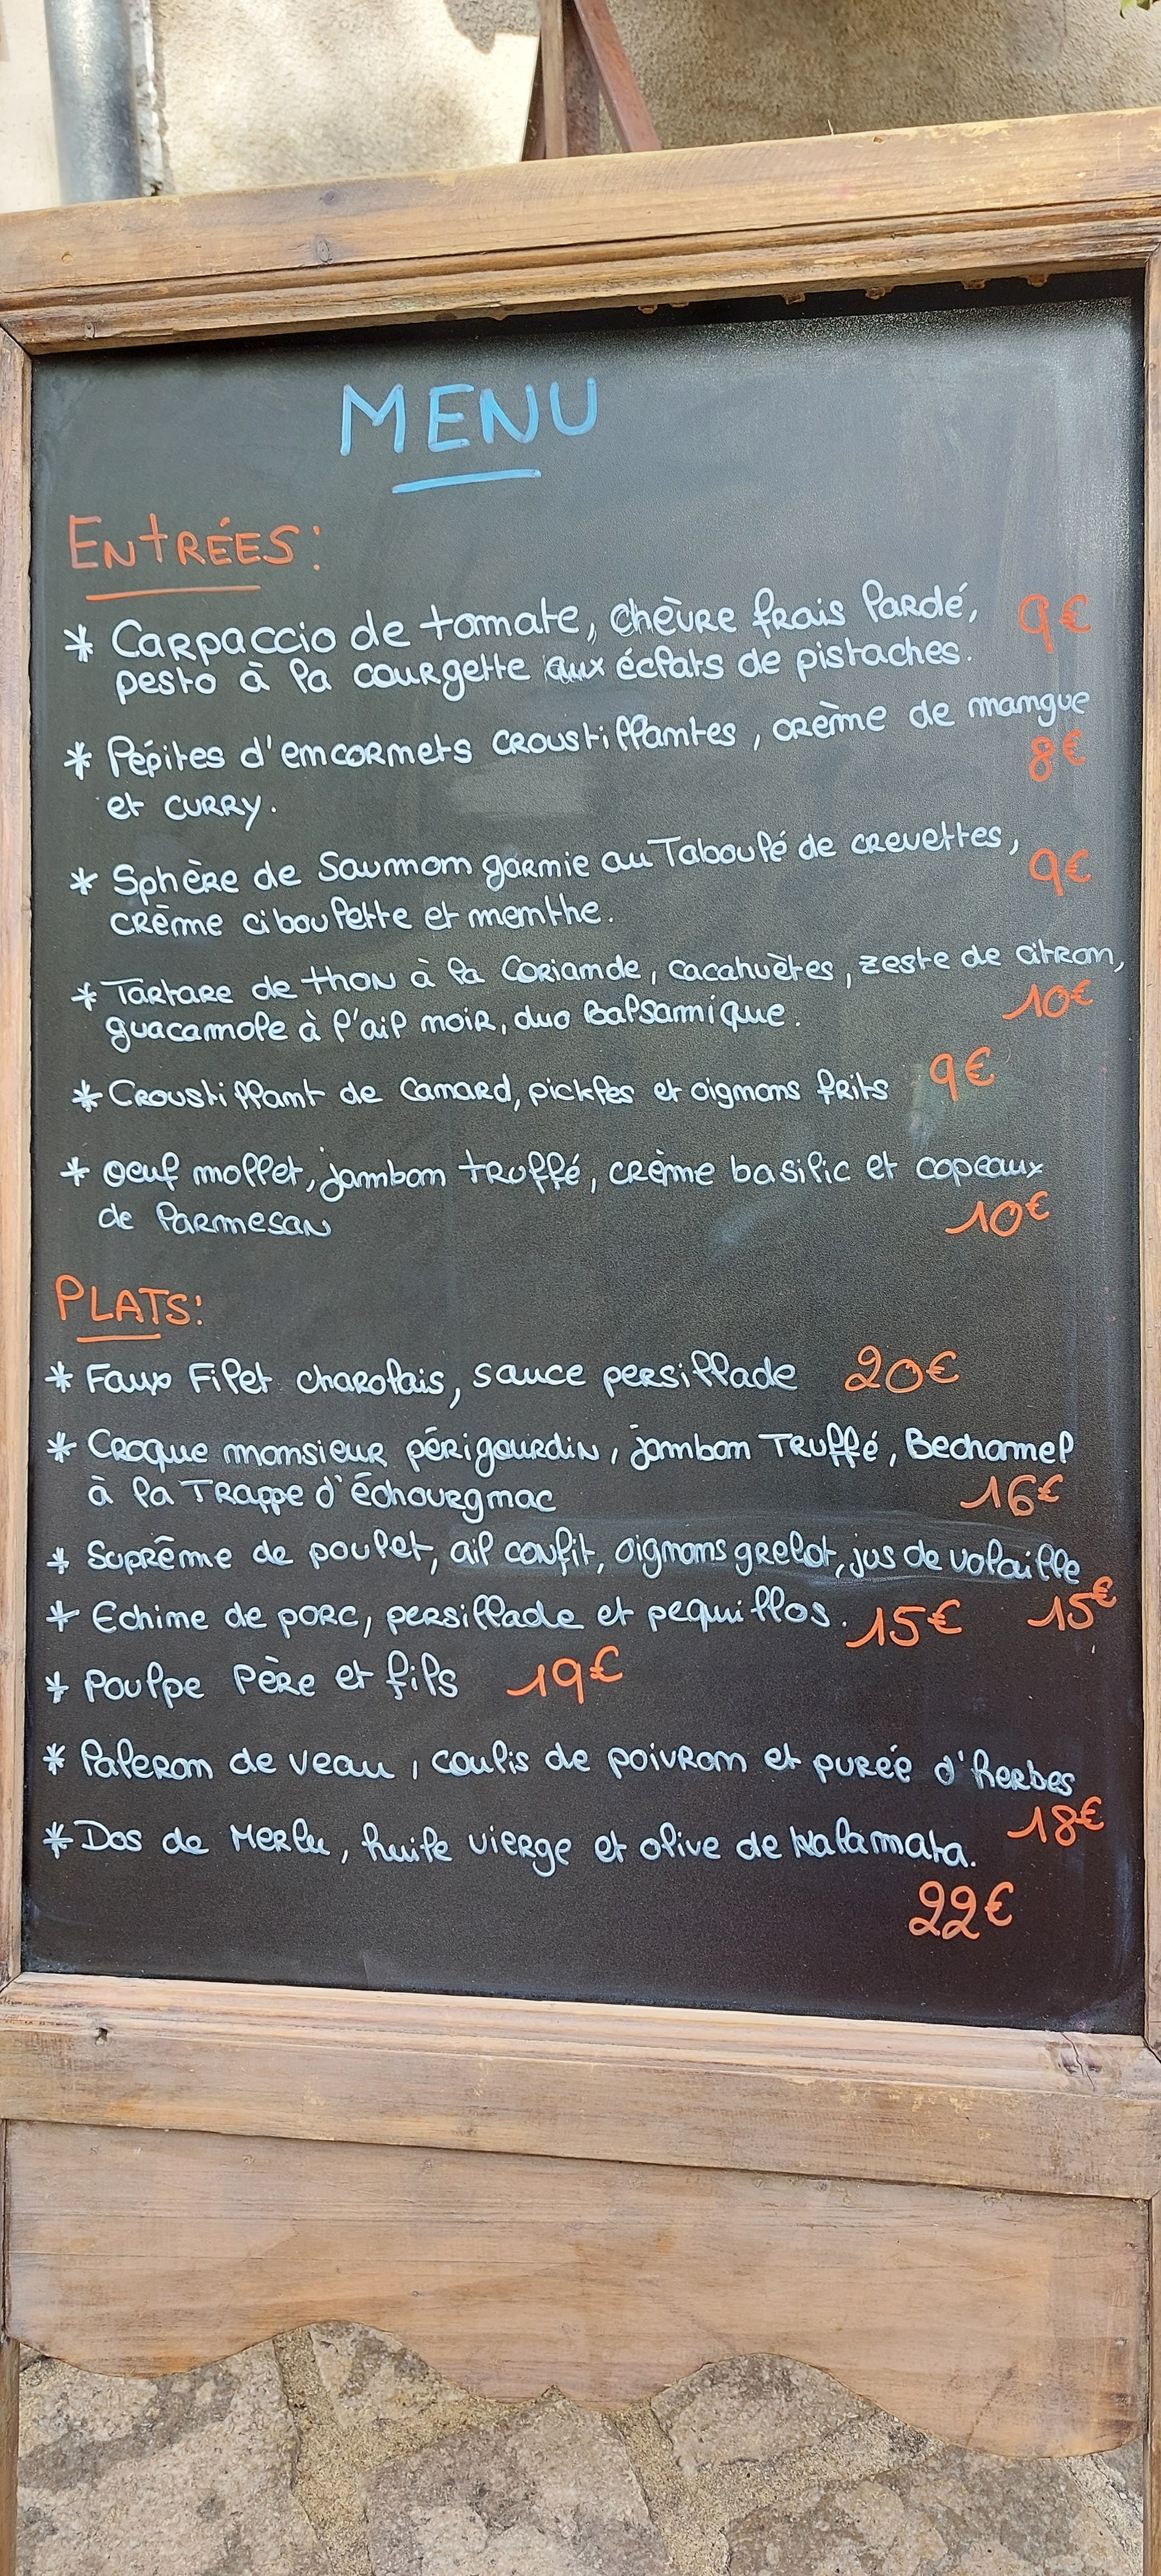 MENU
ENtRÉES:
* Carpaccio de tomate, chèvre frais lardé, 9€
pesto à la courgette aux éclats de pistaches.
* Pépites d'encornets croustillantes, crème de mangue
8€
et curry.
* Sphère de Saumon garnie au Taboulé de crevettes, 9€
crème ciboulette et menthe.
* Tartare de thon à la Coriande, cacahuètes, zeste de citron,
guacamole à l'ail noir, duo Balsamique. 10€
* Croustillant de Canard, pickles et oignons frits 9€
* Oeuf mollet, jambon truffé, crème basilic et copeaux
de Parmesan 10€
PLATS:
* Faux Filet charolais, sauce persillade 20€
* Croque monsieur périgourdin, jambon Truffé, Bechamel
à la Trappe d'Échourgnac 16€
* Suprême de poulet, ail confit, oignons grelot, jus de volaille
15€
* Echine de porc, persillade et pequillos. 15€
* Poulpe Père et fils 19€
* Paleron de veau, coulis de poivron et purée d'herbes
18€
* Dos de Merlu, huile vierge et olive de Kalamata.
22€